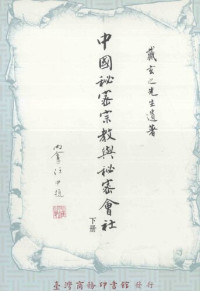 戴玄之先生遺著
中國秘密宗教與秘密會社
下冊
臺灣商務印書館 發行